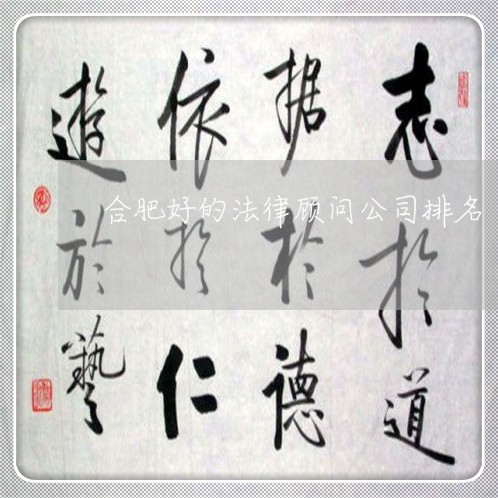 志於道
据於德
依於仁
遊於藝
合肥好的法律顾问公司排名